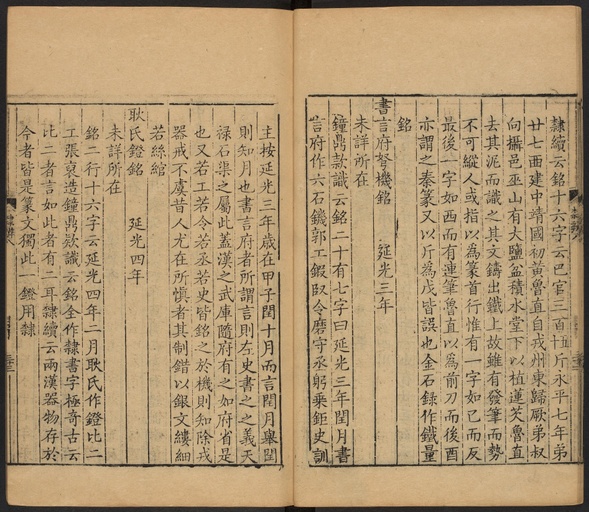 隸續云銘十六字云巴官三百五十斤永平七年弟
廿七酉建中靖國初黃魯直自戎州東歸厥弟叔
向攝邑巫山有大鹽盆積水堂下以植蓮芡魯直
去其泥而識之其文鑄出鐵上故雖有發筆而勢
不可縱人或指以為篆首行惟有一字如巳而反
最後一字如酉而有連筆魯直以為前刀而後酉
亦謂之秦篆又以斤為戊皆誤也金石錄作鐵量
銘
書言府弩機銘 延光三年
未詳所在
鐘鼎款識云銘二十有七字曰延光三年閏月書
言府作六石鐖郭工鍜㕞令磨守丞躬乗鉅史訓
主按延光三年歳在甲子閏十月而言閏月舉閏
則知月也書言府者所謂言則左史書之之義天
祿石渠之屬此蓋漢之武庫隨府有之如府省是
也又若工若令若丞若史皆銘之於機則知除戎
器戒不虞昔人尤在所慎者其制錯以銀文縷細
若絲綰
耿氏鐙銘 延光四年
未詳所在
銘二行十六字云延光四年二月耿氏作鐙比二
工張裒造鐘鼎款識云銘全作隸書字極奇古云
比二者言如此者有二耳隸續云兩漢器物存於
今者皆是篆文獨此一鐙用隸